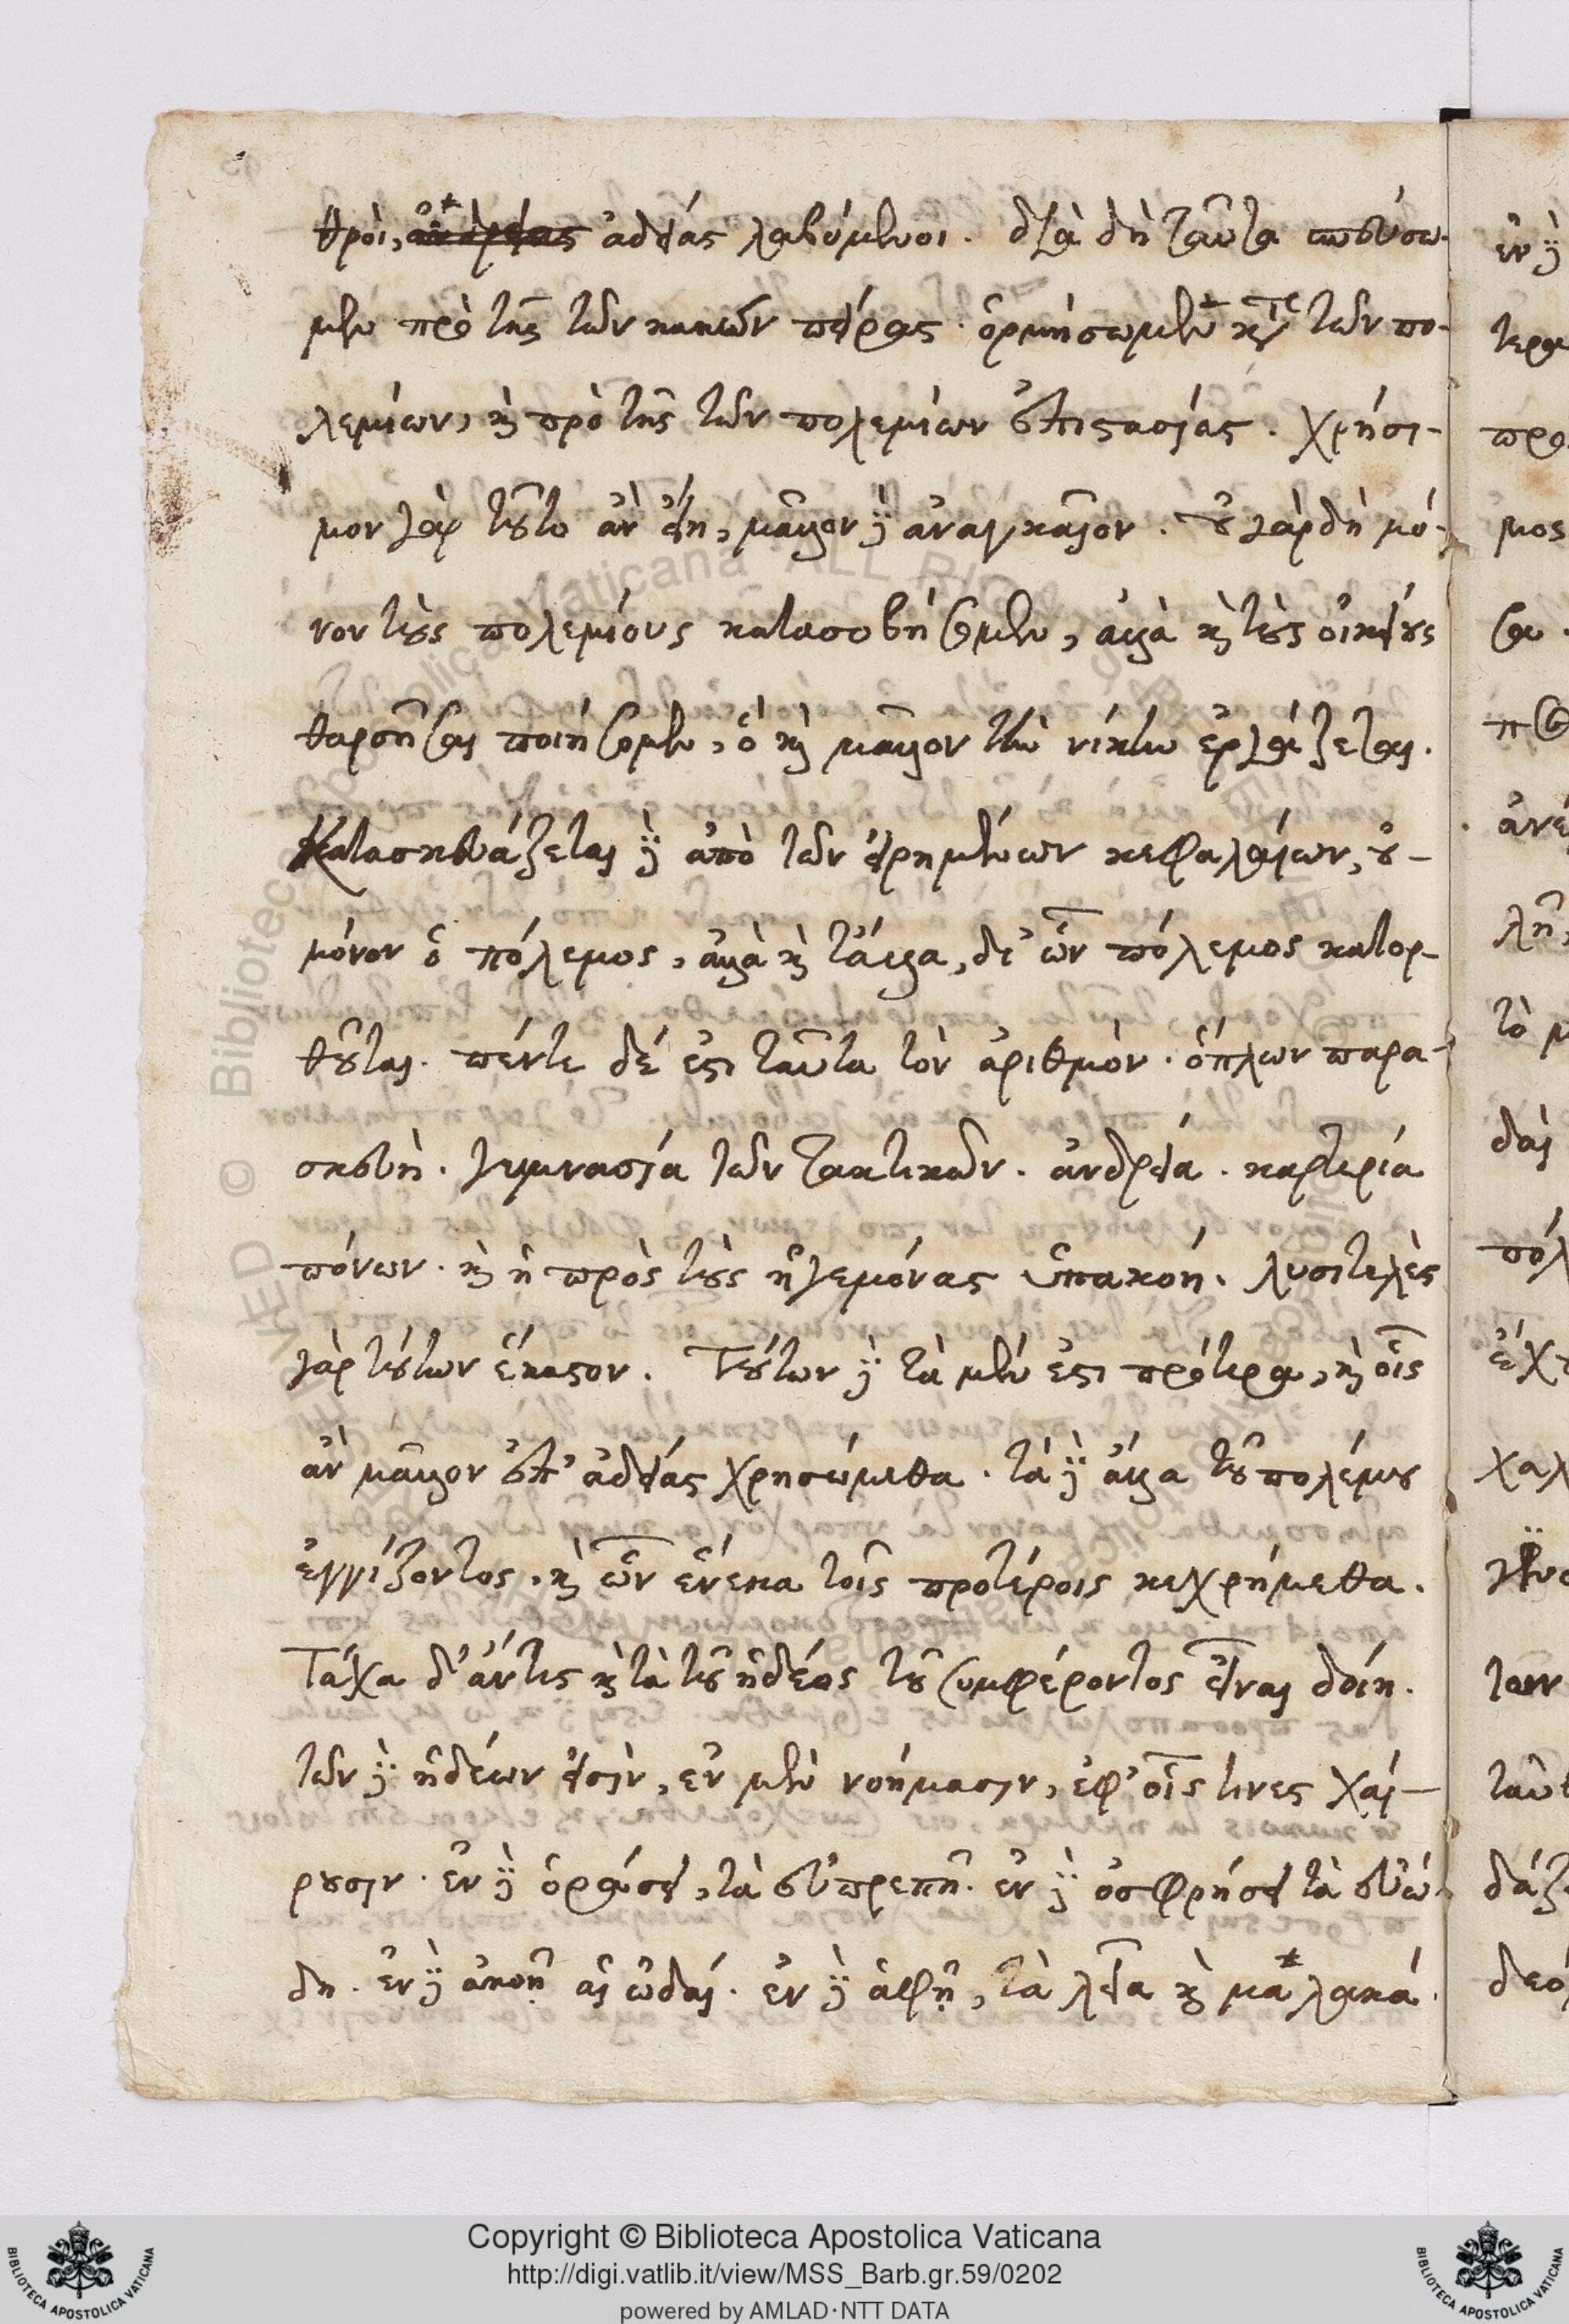 θροὶ, ἀδείας λαβόμενοι. διὰ δὴ ταῦτα πιστεύσω-
μεν πρὸ τῆς τῶν κακῶν πείρας. ὁρμήσωμεν κατὰ τῶν πο-
λεμίων, καὶ πρὸ τῆς τῶν πολεμίων ἐπιστασίας. χρήσι-
μον γὰρ τοῦτο ἂν εἴη, μᾶλλον δὲ ἀναγκαῖον. οὐ γὰρ δὴ μό-
νον τοὺς πολεμίους κατασοβήσομεν, ἀλλὰ καὶ τοὺς οἰκείους
θαρσῆσαι ποιήσομεν, ὃ καὶ μᾶλλον τὴν νίκην ἐργάζεται.
Κατασκευάζεται δὲ ἀπὸ τῶν εἰρημένων κεφαλαίων, οὐ-
μόνον ὁ πόλεμος, ἀλλὰ καὶ τἄλλα, δι' ὧν πόλεμος κατορ-
θοῦται. πέντε δέ ἐστι ταῦτα τὸν ἀριθμὸν. ὅπλων παρα-
σκευὴ. γυμνασία τῶν τακτικῶν. ἀνδρεία. καρτερία
πόνων. καὶ ἡ πρὸς τοὺς ἡγεμόνας ὑπακοή. λυσιτελὲς
γὰρ τούτων ἕκαστον. Τούτων δὲ τὰ μέν ἐστι πρότερα, καὶ οἷς
ἂν μᾶλλον ἐπ' ἀδείας χρησώμεθα. τὰ δὲ ἄλλα τοῦ πολέμου
ἐγγίζοντος, καὶ ὧν ἕνεκα τοῖς προτέροις κεχρήμεθα.
Τάχα δ' ἄν τις καὶ τὰ τοῦ ἡδέος τοῦ συμφέροντος εἶναι δοίη.
τῶν δὲ ἡδέων εἰσὶν, ἐν μὲν νοήμασιν, ἐφ' οἷς τινες χαί-
ρουσιν. ἐν δὲ ὁράσει, τὰ εὐπρεπῆ. ἐν δὲ ὀσφρήσει τὰ εὐώ-
δη. ἐν δὲ ἀκοῇ αἱ ᾠδαί. ἐν δὲ ἁφῇ, τὰ λεῖα καὶ μαλακά.
ἐν δὲ
τερα
προ
μος
σω.
πο
ἀνέ
λῆ
τὸ μ
δαι
πόλ
ἐχ
χαλ
των
ταῦτ
δάζ
δεό
Copyright © Biblioteca Apostolica Vaticana
http://digi.vatlib.it/view/MSS_Barb.gr.59/0202
powered by AMLAD·NTT DATA